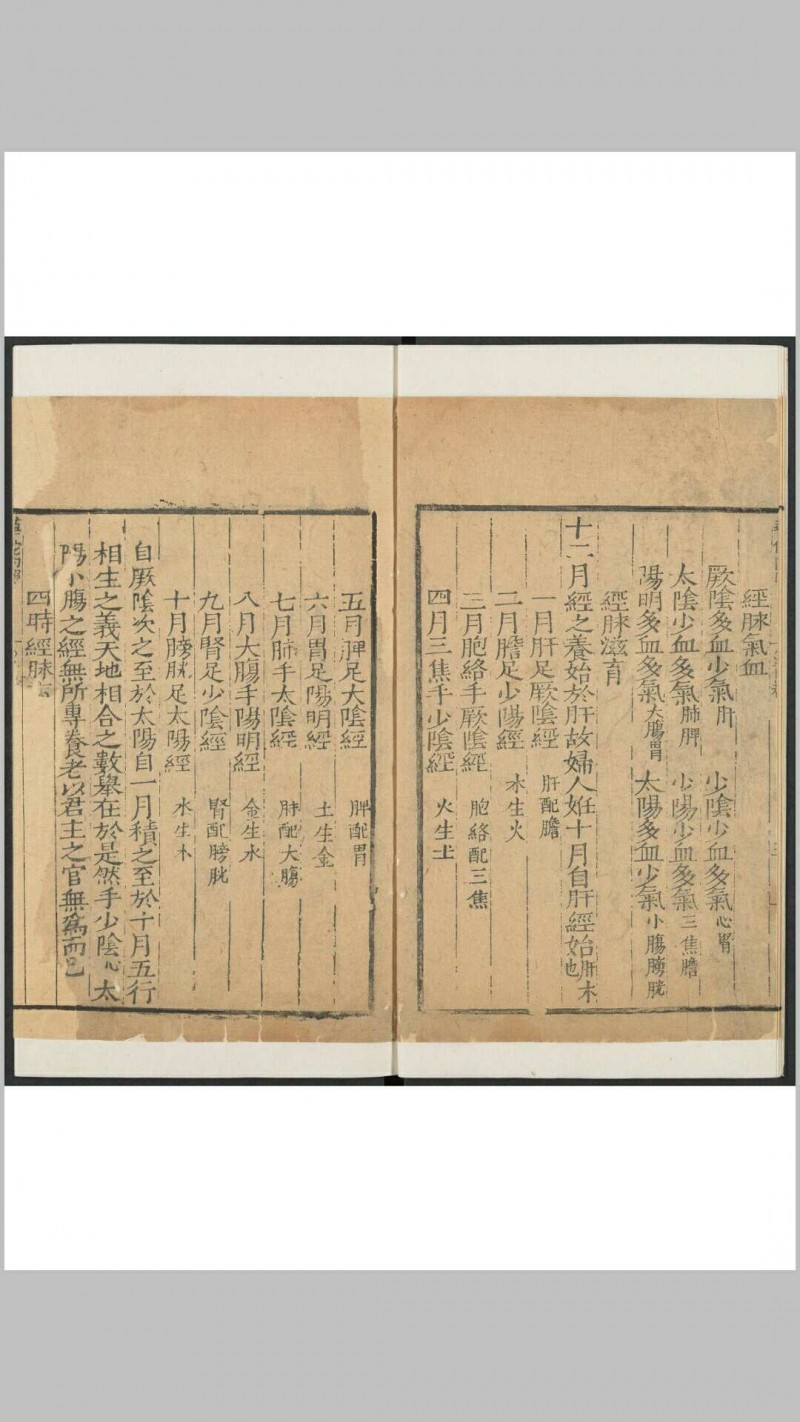 經脉氣血
厥隂多血少氣肝 少隂少血多氣心腎
太隂少血多氣肺脾 少陽少血多氣三焦膽
陽明多血多氣大膓胃 太陽多血少氣小膓膀胱
經脉滋育
十二月經之養始於肝故婦人姙十月自肝經始肝木也
一月肝足厥隂經 肝配膽
二月膽足少陽經 木生火
三月胞絡手厥隂經 胞絡配三焦
四月三焦手少隂經 火生土
五月脾足太隂經 脾配胃
六月胃足陽明經 土生金
七月肺手太隂經 肺配大膓
八月大膓手陽明經 金生水
九月腎足少隂經 腎配膀胱
十月膀胱足太陽經 水生木
自厥隂次之至於太陽自一月積之至於十月五行
相生之義天地相合之數舉在於是然手少隂心太
陽小膓之經無所專養者以君主之官無爲而已
四時經脉